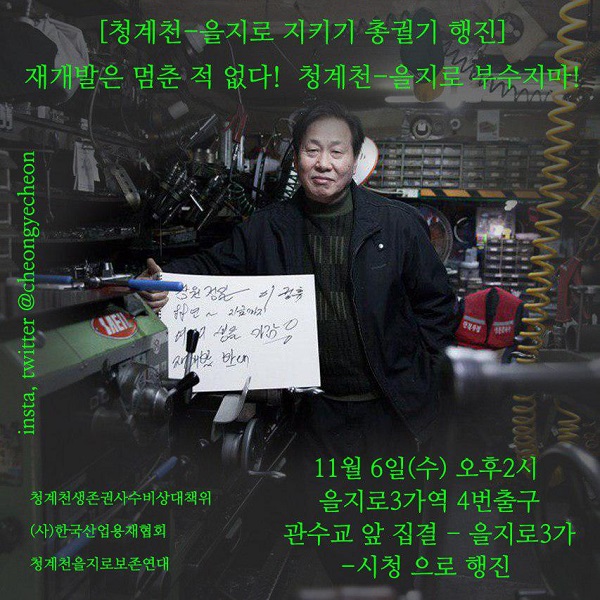 [청계천-을지로 지키기 총궐기 행진]
재개발은 멈춘 적 없다! 청계천-을지로 부수지마!
insta, twitter @cheongyecheon
재개발 반대
11월 6일(수) 오후2시
을지로3가역 4번출구
관수교 앞 집결 - 을지로3가
-시청 으로 행진
청계천생존권사수비상대책위
(사)한국산업용재협회
청계천을지로보존연대